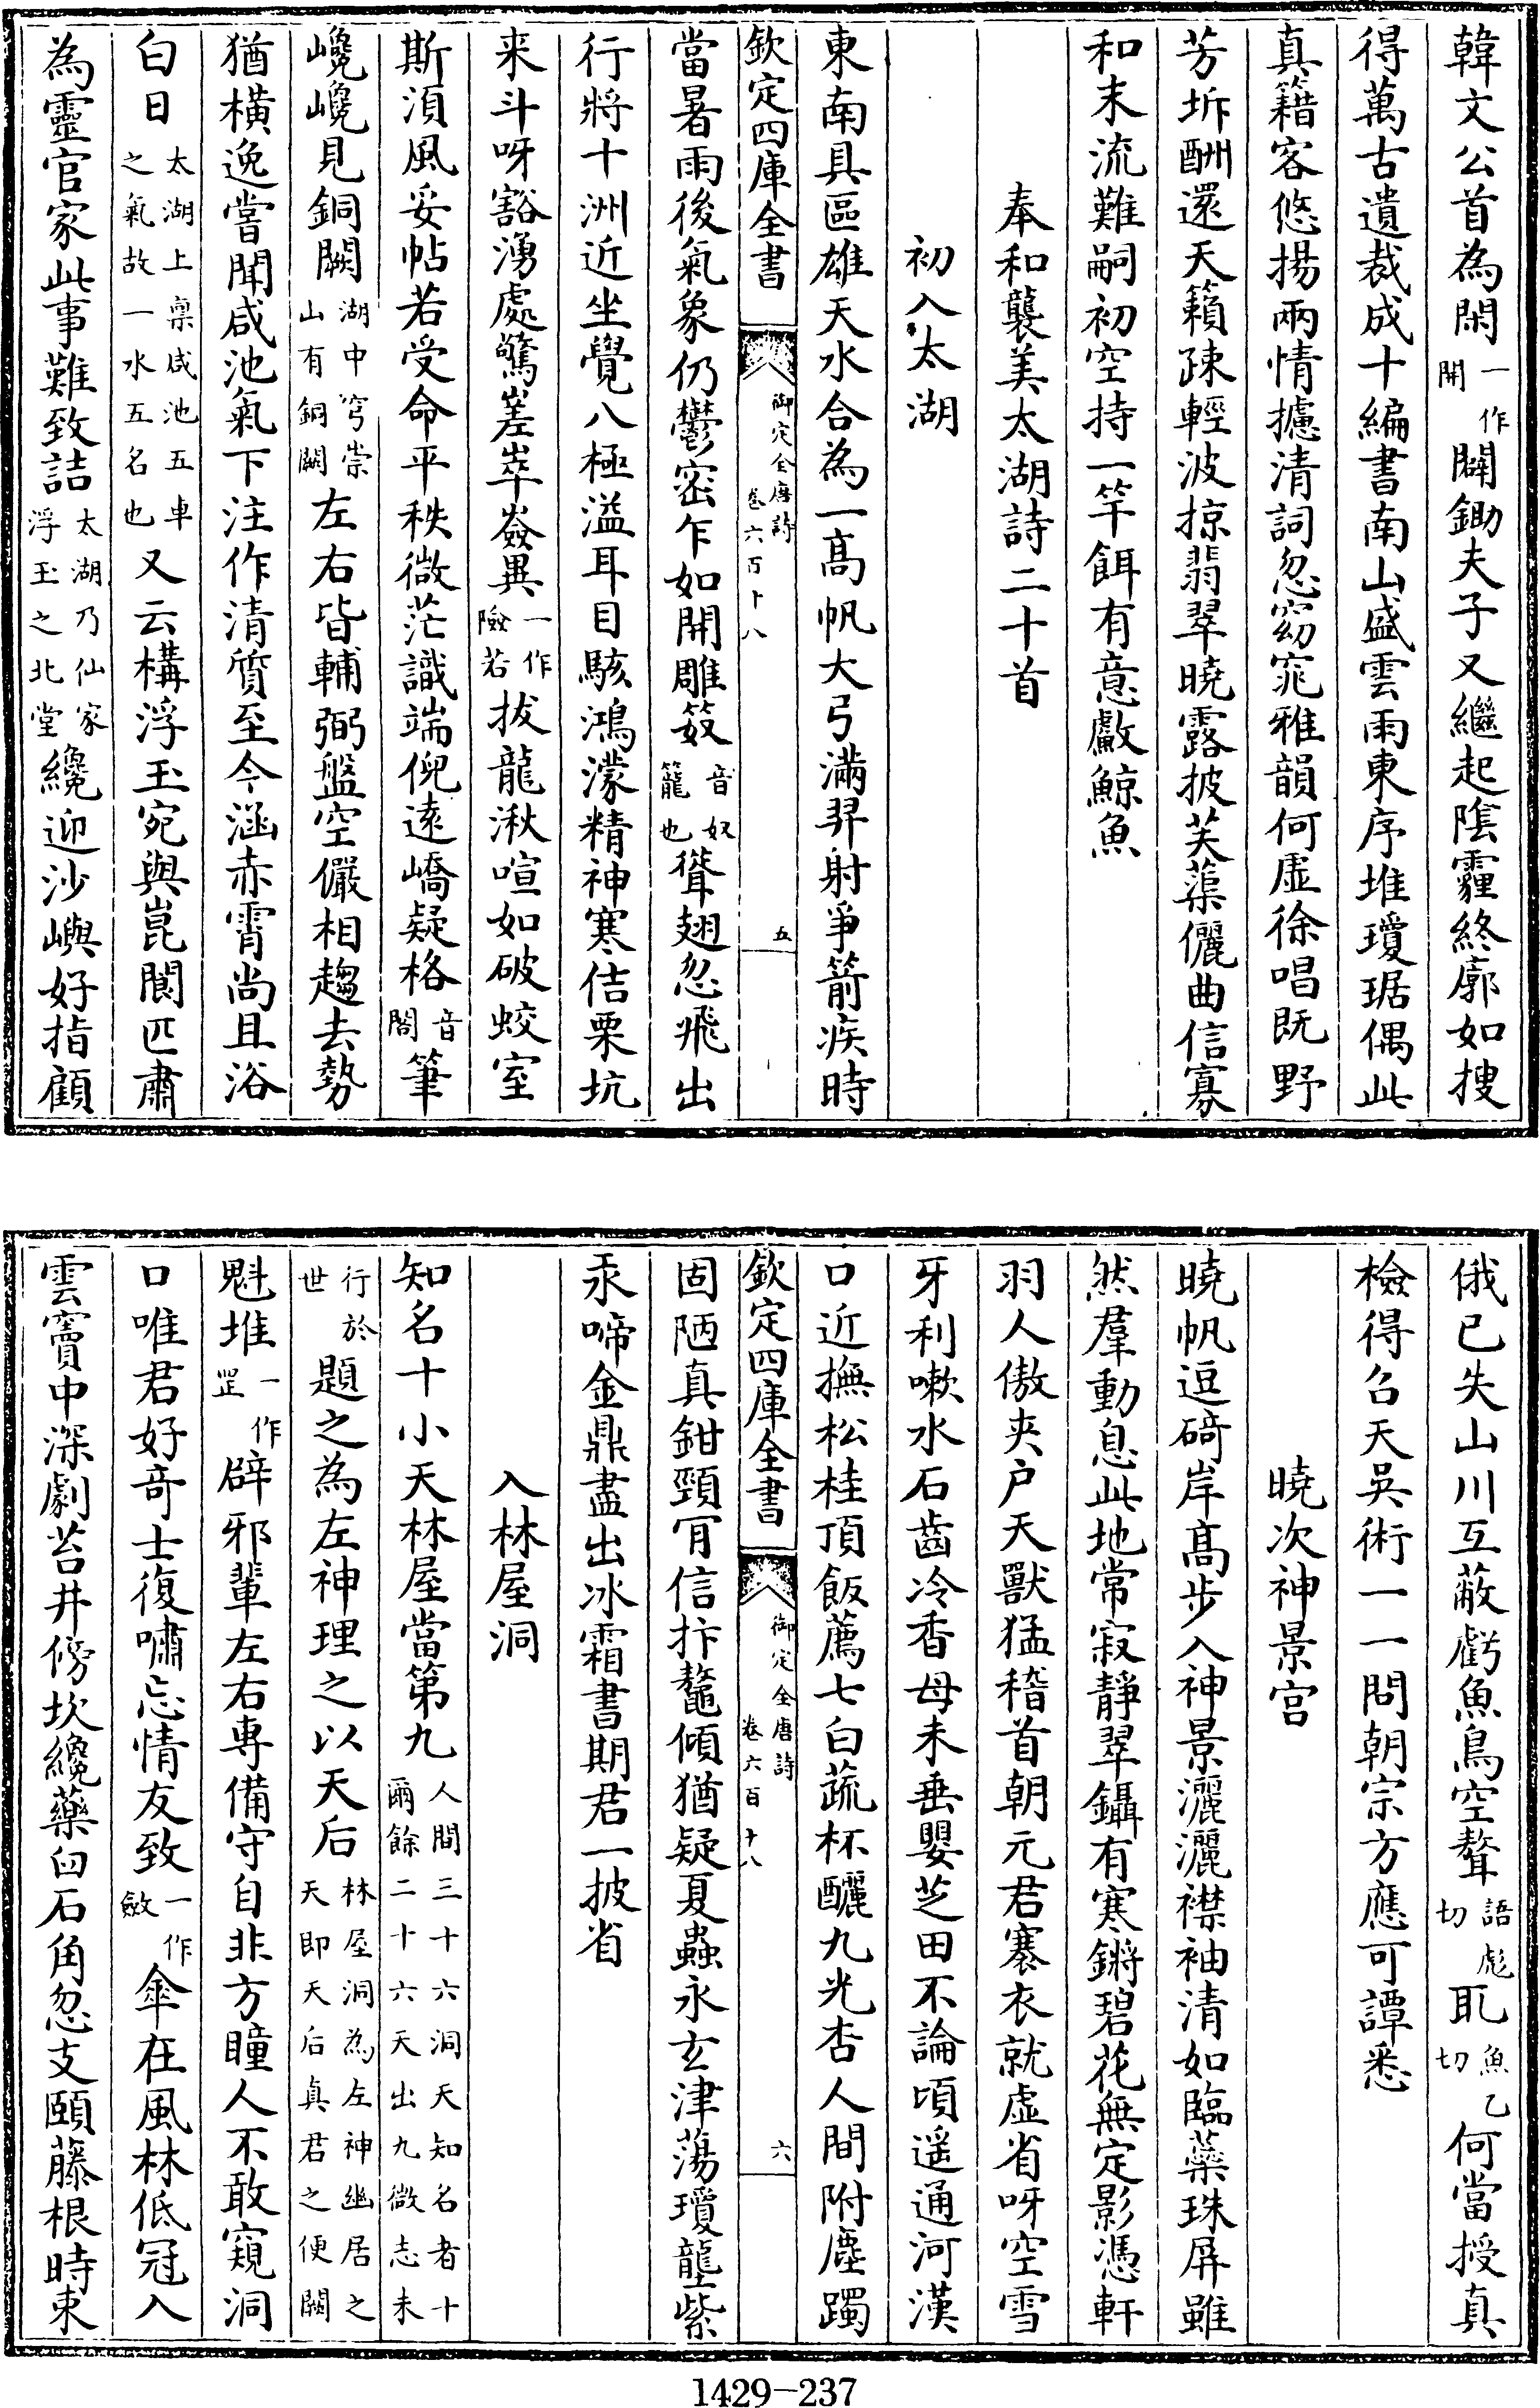 韓文公首為閑一作開闢鋤夫子又繼起陰霾終廓如搜
得萬古遺裁成十編書南山盛雲雨東序堆瓊琚偶此
真籍客悠揚兩情攄清詞忽窈窕雅韻何虛徐唱既野
芳坼酬還天籟疎輕波掠翡翠曉露披芙蕖儷曲信寡
和末流難嗣初空持一竿餌有意㱃鯨魚
奉和襲美太湖詩二十首
初入太湖
東南具區雄天水合為一高帆大弓滿羿射爭箭疾時
欽定四庫全書 御定全唐詩 卷六百十八 五
當暑雨後氣象仍鬱密乍如開雕笯音奴籠也聳翅忽飛出
行將十洲近坐覺八極溢耳目駭鴻濛精神寒佶栗坑
来斗呀豁湧處驚嵳崒崟異一作險若拔龍湫喧如破蛟室
斯湏風妥帖若受命平秩微茫識端倪遠嶠疑格音閣筆
巉巉見銅闕湖中穹崇山有銅闕左右皆輔弼盤空儼相趨去勢
猶橫逸嘗聞咸池氣下注作清質至今涵赤霄尚且浴
白日太湖上禀咸池五車之氣故一水五名也又云構浮玉宛與崑閬匹肅
為靈官家此事難致詰太湖乃仙家浮玉之北堂纔迎沙嶼好指顧
俄已失山川互蔽虧魚鳥空聱語彪切耴魚乙切何當授真
檢得召天吳術一一問朝宗方應可譚悉
曉次神景宫
曉帆逗碕岸高步入神景灑灑襟袖清如臨蘂珠屏雖
然羣動息此地常寂靜翠鑷有寒鏘碧花無定影憑軒
羽人傲夾户天獸猛稽首朝元君褰衣就虛省呀空雪
牙利嗽水石齒冷香母未垂嬰芝田不論頃遥通河漢
口近撫松桂頂飯薦七白蔬杯釃九光杏人間附塵躅
欽定四庫全書 御定全唐詩 卷六百十八 六
固陋真鉗頸肎信抃鼇傾猶疑夏蟲永玄津蕩瓊壟紫
汞啼金鼎盡出冰霜書期君一披省
入林屋洞
知名十小天林屋當第九人間三十六洞天知名者十爾餘二十六天出九微志未
行於世題之為左神理之以天后林屋洞為左神幽居之天即天后真君之便闕
魁堆一作罡辟邪輩左右專備守自非方瞳人不敢窺洞
口唯君好竒士復嘯忘情友致一作斂傘在風林低冠入
雲竇中深劇苔井傍坎纔藥臼石角忽支頤藤根時束
1429-237